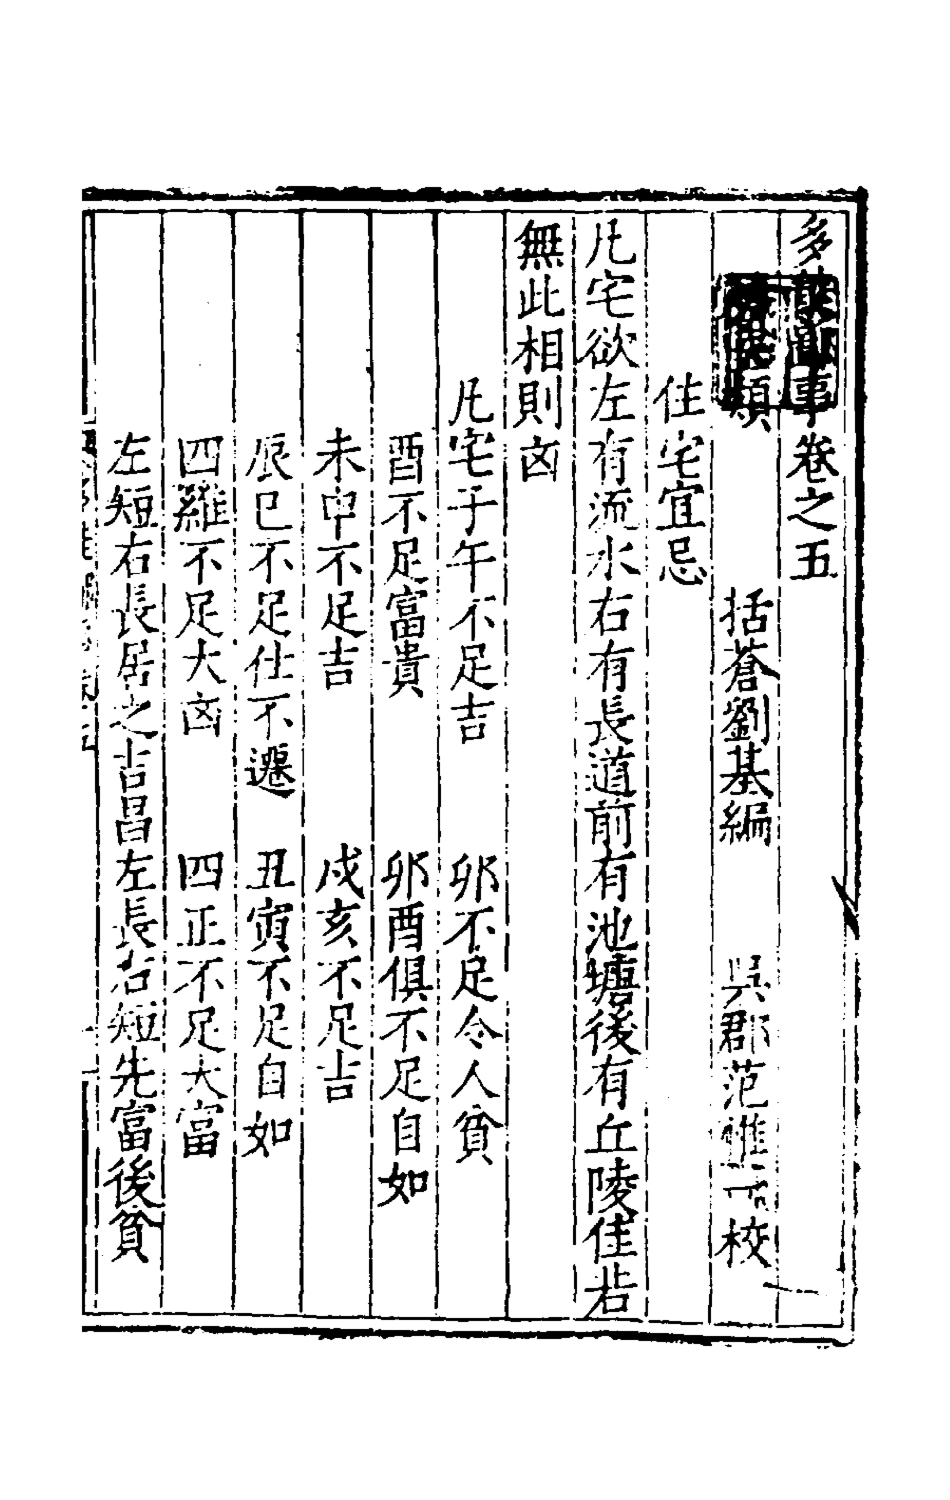 多能鄙事卷之五
類　括蒼劉基編　吳郡范惟一校
住宅宜忌
凡宅欲左有流水右有長道前有池塘後有丘陵佳若
無此相則凶
凡宅子午不足吉　卯不足令人貧
酉不足富貴　卯酉俱不足自如
未申不足吉　戌亥不足吉
辰巳不足仕不遷　丑寅不足自如
四羅不足大凶　四正不足大富
左短右長居之吉昌左長右短先富後貧